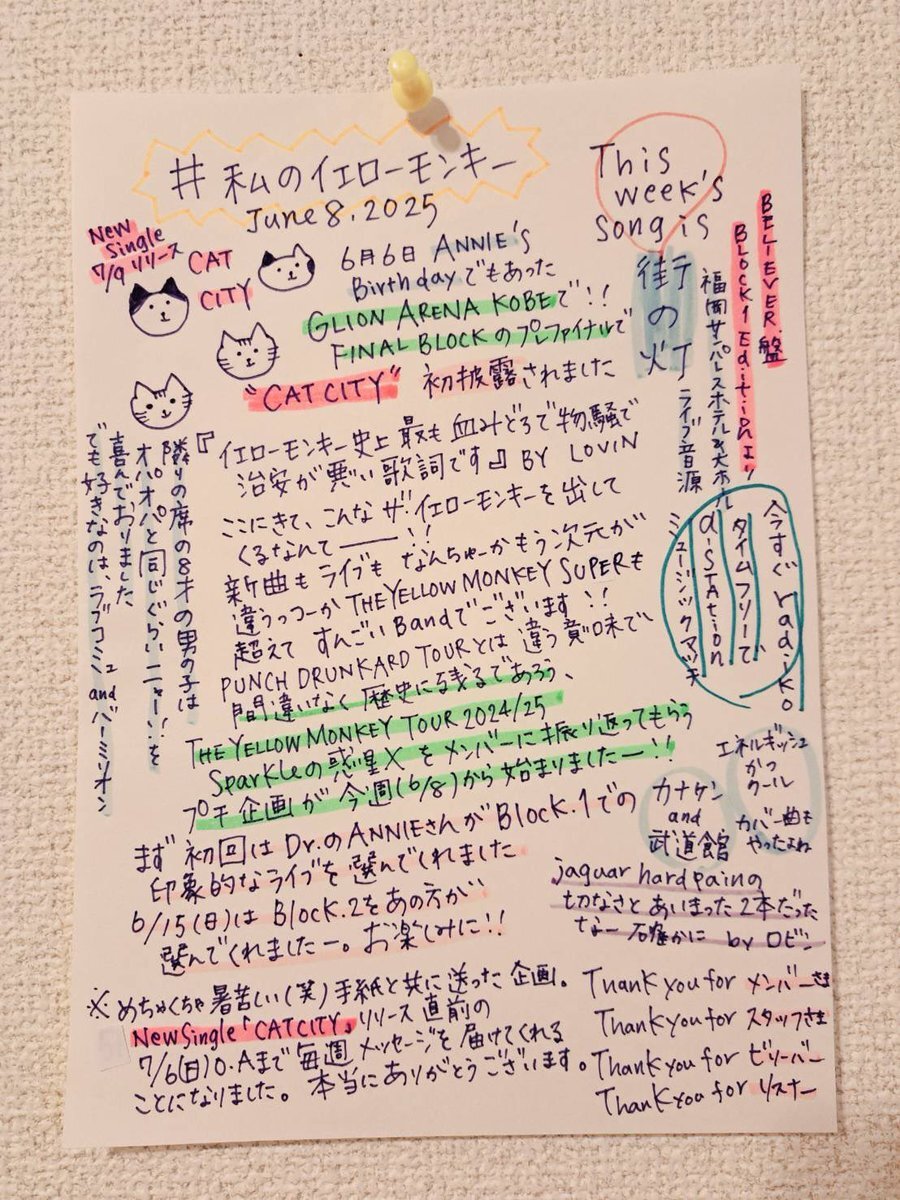 #私のイエローモンキー
June 8. 2025
New
Single
7/9 リリース
CAT
CITY
6月6日 ANNIE'S
Birthdayでもあった
GLION ARENA KOBEで!!
FINAL BLOCKのプレファイナルで
"CAT CITY" 初披露されました
This
week's
song is
街の灯
BELIEVER盤
BLOCK 1 Editionより
福岡サンパレスホテル&大ホール
ライブ音源
『イエローモンキー史上 最も血みどろで物騒で
治安が悪い歌詞です』 BY LOVIN
ここにきて、こんな ザ・イエローモンキーを出して
くるなんて――!!
新曲もライブも なんちゅーかもう次元が
違うっつーか THE YELLOW MONKEY SUPERも
超えて すんごいBandでございます!!
PUNCH DRUNKARD TOURとは違う意味で
間違いなく歴史に残るであろう、
THE YELLOW MONKEY TOUR 2024/25
Sparkleの惑星X をメンバーに振り返ってもらう
プチ企画が今週(6/8)から始まりましたー!!
まず初回は Dr.のANNIEさんがBlock.1での
印象的なライブを選んでくれました
6/15(日)は Block.2をあの方が
選んでくれましたー。お楽しみに!!
隣りの席の8才の男の子は
オパオパと同じぐらいニャー!!を
喜んでおりました
でも好きなのは、ラブコミュ andバーミリオン
今すぐ radiko
タイムフリーで
α-STATION
ミュージックマッチ
エネルギッシュ
かつ
クール
カナケン
and
武道館
カバー曲も
やったよね
jaguar hard painの
切なさとあいまった2本だった
なー 確かに by ロビン
※めちゃくちゃ暑苦しい(笑)手紙と共に送った企画。
New Single「CAT CITY」リリース直前の
7/6(日)O.Aまで毎週 メッセージを届けてくれる
ことになりました。本当にありがとうございます。
Thank you for メンバーさま
Thank you for スタッフさま
Thank you for ビリーバー
Thank you for リスナー